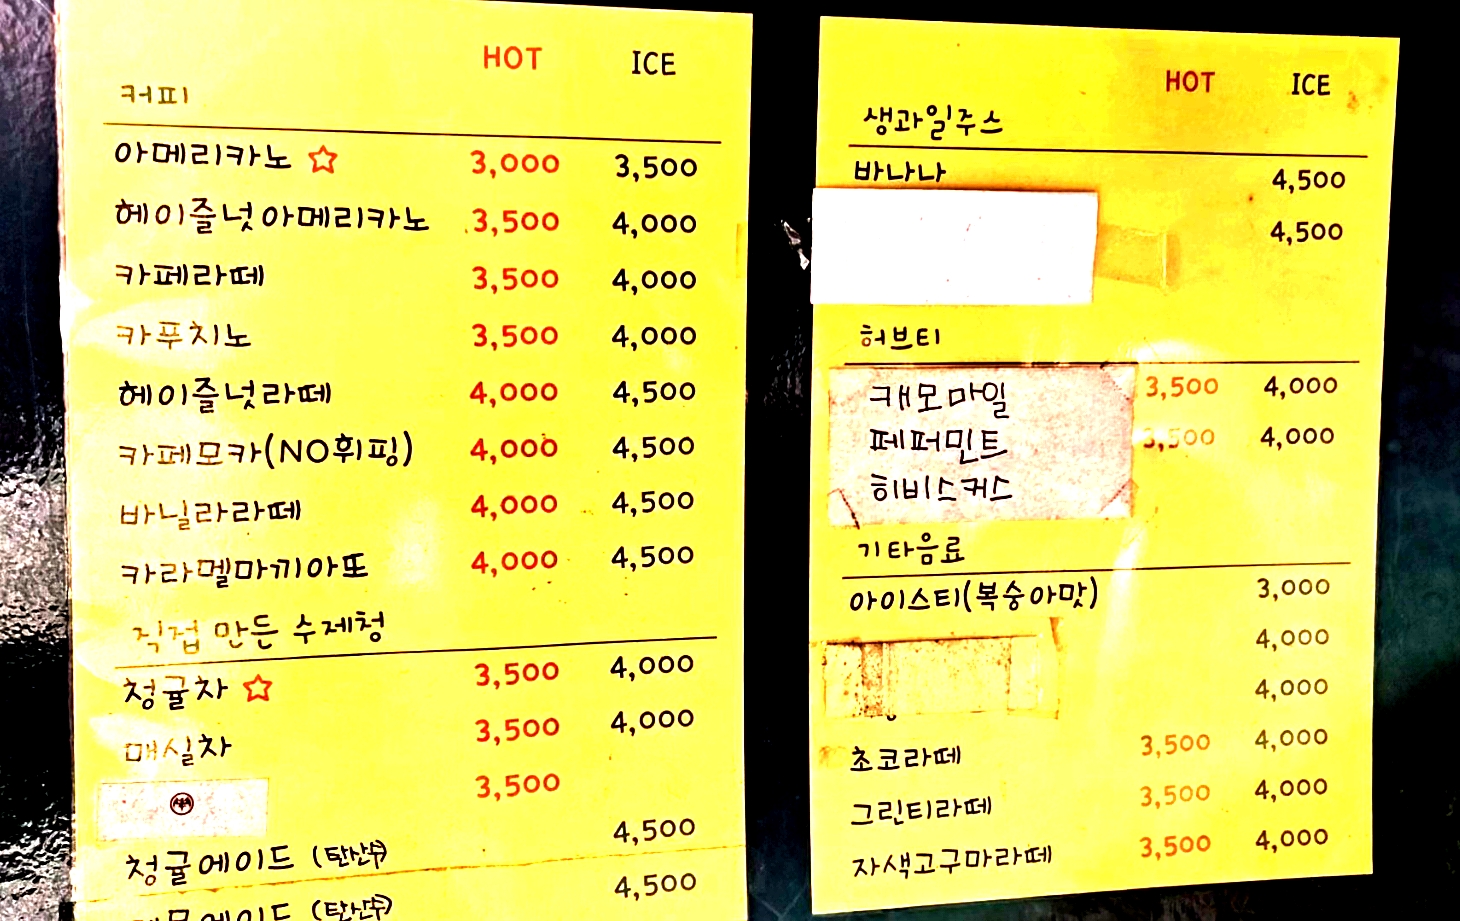 HOT ICE
커피
아메리카노 ☆ 3,000 3,500
헤이즐넛아메리카노 3,500 4,000
카페라떼 3,500 4,000
카푸치노 3,500 4,000
헤이즐넛라떼 4,000 4,500
카페모카(NO휘핑) 4,000 4,500
바닐라라떼 4,000 4,500
카라멜마끼아또 4,000 4,500
직접 만든 수제청
청귤차 ☆ 3,500 4,000
매실차 3,500 4,000
3,500
청귤에이드 (탄산수) 4,500
에이드 (탄산수) 4,500
HOT ICE
생과일주스
바나나 4,500
4,500
허브티
캐모마일 3,500 4,000
페퍼민트 3,500 4,000
히비스커스
기타음료
아이스티(복숭아맛) 3,000
4,000
4,000
초코라떼 3,500 4,000
그린티라떼 3,500 4,000
자색고구마라떼 3,500 4,000